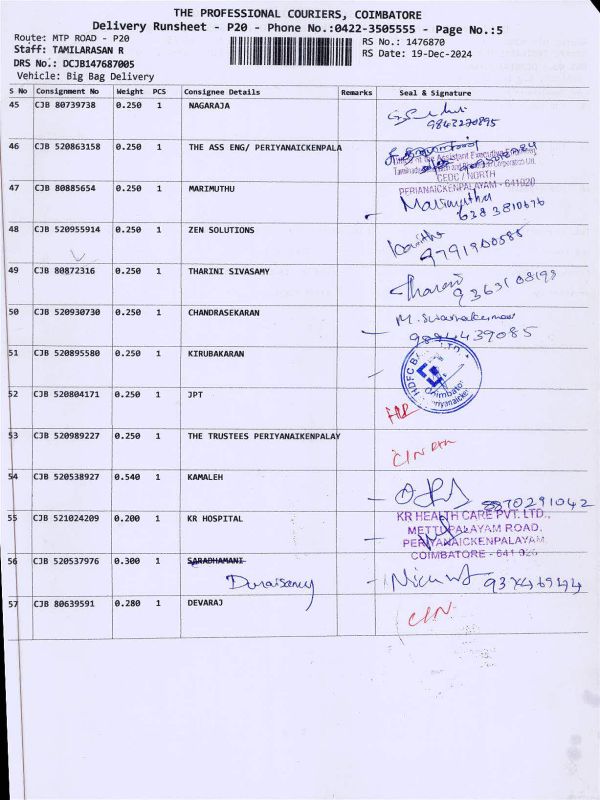 THE PROFESSIONAL COURIERS, COIMBATORE
Delivery Runsheet - P20 - Phone No.:0422-3505555 - Page No.:5
Route: MTP ROAD - P20 RS No.: 1476870
Staff: TAMILARASAN R RS Date: 19-Dec-2024
DRS No.: DCJB147687005
Vehicle: Big Bag Delivery
S No Consignment No Weight PCS Consignee Details Remarks Seal & Signature
45 CJB 80739738 0.250 1 NAGARAJA
9843270895
46 CJB 520863158 0.250 1 THE ASS ENG/ PERIYANAICKENPALA
Assistant Executive
CEDC / NORTH
PERIANAICKENPALAYAM - 641020
47 CJB 80885654 0.250 1 MARIMUTHU
Marimuthu
6383810676
48 CJB 520955914 0.250 1 ZEN SOLUTIONS
9791900585
49 CJB 80872316 0.250 1 THARINI SIVASAMY
Tharani
9363108198
50 CJB 520930730 0.250 1 CHANDRASEKARAN
9894439085
51 CJB 520895580 0.250 1 KIRUBAKARAN
HDFC BANK LTD
Coimbatore
52 CJB 520804171 0.250 1 JPT
53 CJB 520989227 0.250 1 THE TRUSTEES PERIYANAIKENPALAY
54 CJB 520538927 0.540 1 KAMALEH
8870291042
55 CJB 521024209 0.200 1 KR HOSPITAL
KR HEALTH CARE PVT. LTD.,
METTUPALAYAM ROAD,
PERIYANAICKENPALAYAM,
COIMBATORE - 641 020
56 CJB 520537976 0.300 1 SARADHAMANI
Duraisamy
57 CJB 80639591 0.280 1 DEVARAJ